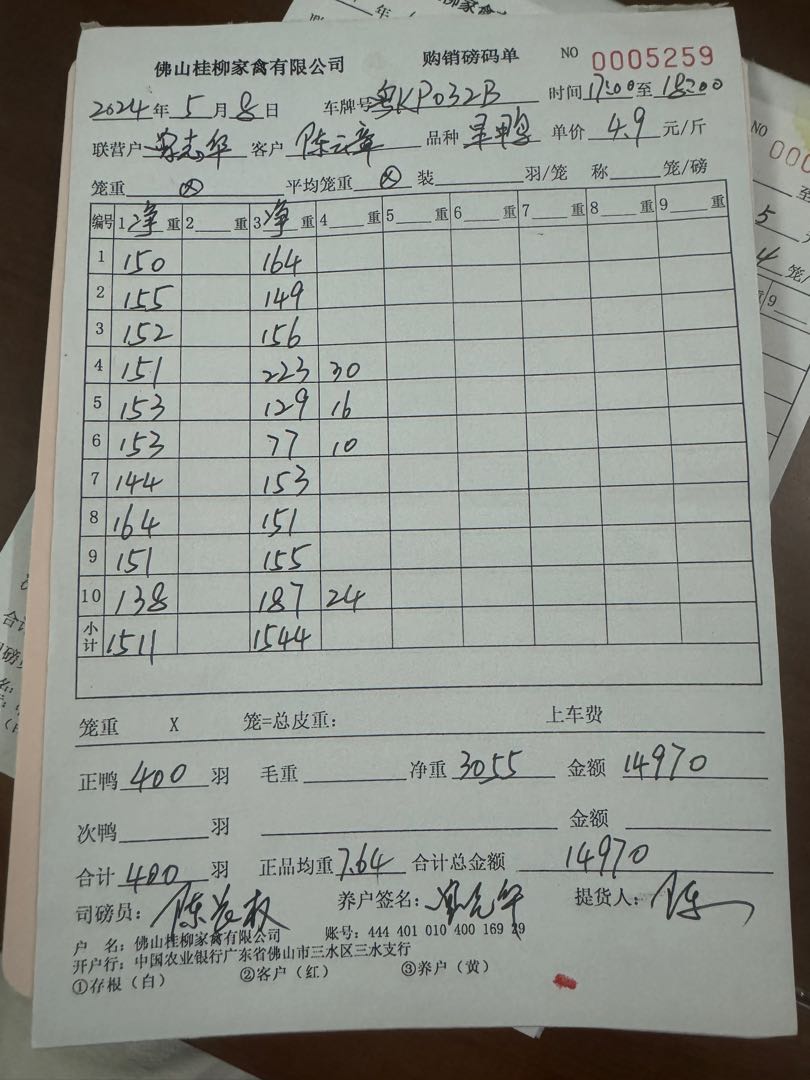 佛山桂柳家禽有限公司 购销磅码单 NO 0005259
2024年5月8日 车牌号粤KP032B 时间17:00至18:00
联营户 志华 客户 陈云章 品种 鸭 单价 4.9 元/斤
笼重 平均笼重 装 羽/笼 称 笼/磅
编号 1净重 2 重 3净重 4 重 5 重 6 重 7 重 8 重 9 重
1 150 164
2 155 149
3 152 156
4 151 223 30
5 153 129 16
6 153 77 10
7 144 153
8 164 151
9 151 155
10 138 187 24
小计 1511 1544
笼重 X 笼=总皮重： 上车费
正鸭 400 羽 毛重 净重 3055 金额 14970
次鸭 羽 金额
合计 400 羽 正品均重 7.64 合计总金额 14970
司磅员： 陈 权 养户签名： 提货人： 陈
户 名：佛山桂柳家禽有限公司 账号：444 401 010 400 169 29
开户行：中国农业银行广东省佛山市三水区三水支行
①存根（白） ②客户（红） ③养户（黄）